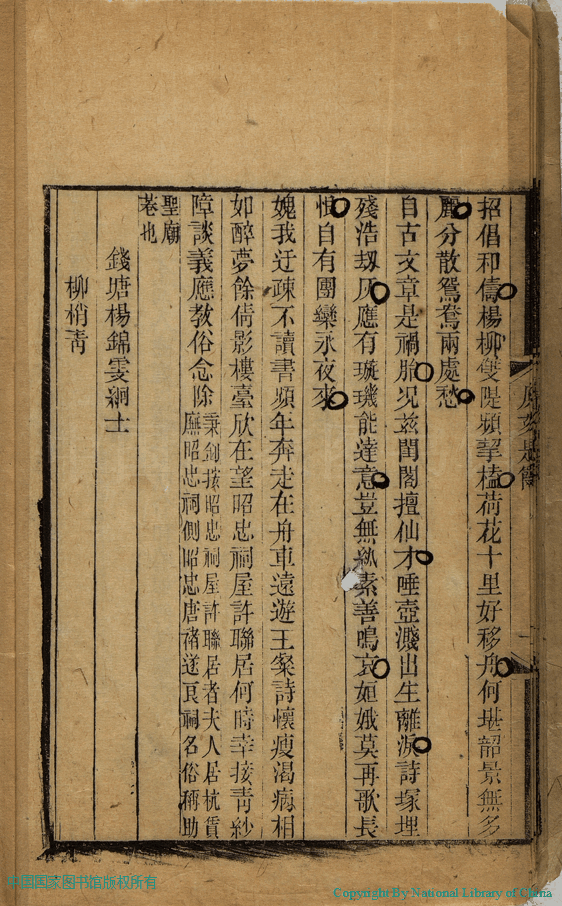 招倡和儔楊柳雙隄頻挈榼荷花十里好移舟何堪韶景無多
麗分散鴛鴦兩處愁
自古文章是禍胎况兹閨閣擅仙才唾壺濺出生離淚詩塚埋
殘浩刼灰應有璇璣能達意豈無紈素善鳴哀姮娥莫再歌長
恨自有團欒永夜來
媿我迂疎不讀書頻年奔走在舟車遠遊王粲詩懷瘦渴病相
如醉夢餘倩影樓臺欣在望昭忠祠屋許聯居何時幸接青紗
障談義應教俗念除秉釗按昭忠祠屋許聯居者夫人居杭賃
廡昭忠祠側昭忠唐褚遂良祠名俗稱助
聖廟
老也
錢塘楊錦雯絅士
柳梢青
中国国家图书馆版权所有
Copyright By National Library of China